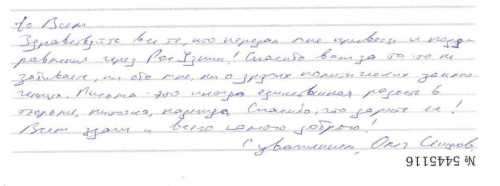 Всем
Здравствуйте все те, кто передал мне приветы и позд-
равления через РосУзник! Спасибо вам за то что не
забываете, ни обо мне, ни о других политических заклю-
ченных. Письма - это иногда единственная радость в
тюрьме, надежда. Спасибо, что дарите её!
Всем удачи и всего самого доброго!
С уважением, Олег
№ 5445116